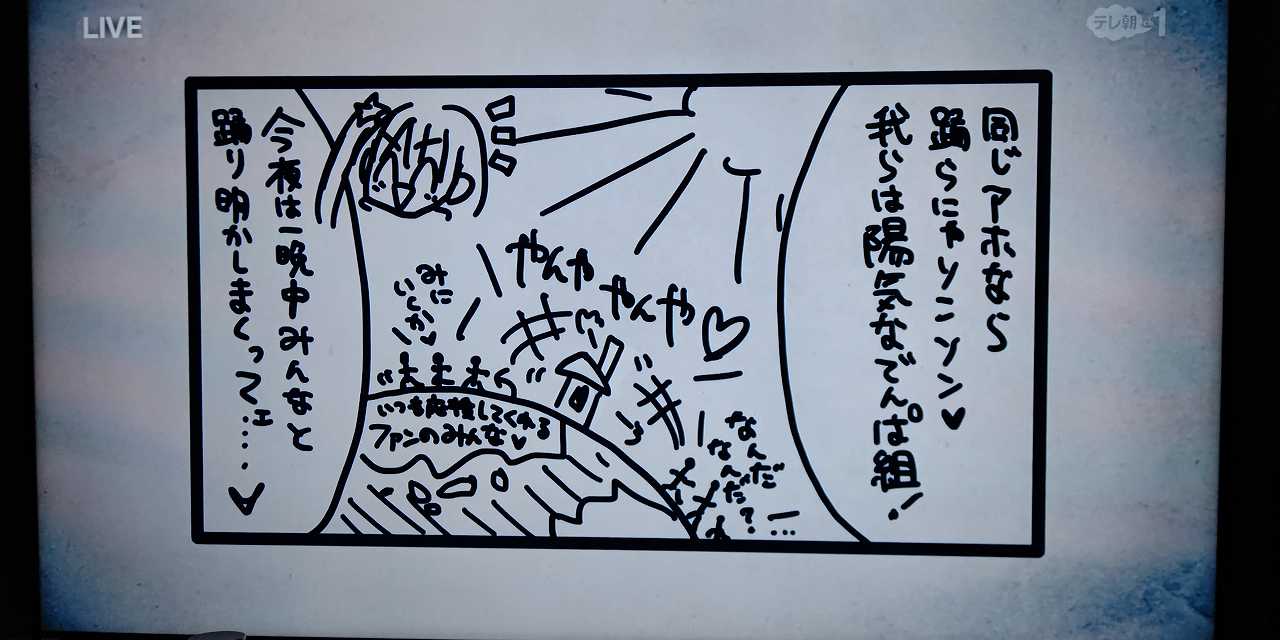 LIVE
テレ朝ch1
同じアホなら
踊らにゃソンソン♥
我らは陽気なでんぱ組!
やんや
やんや
♡
みに
いくか♥
いつも応援してくれる
ファンのみんな♥
なんだ
なんだ?
今夜は一晩中みんなと
踊り明かしまくってェ……